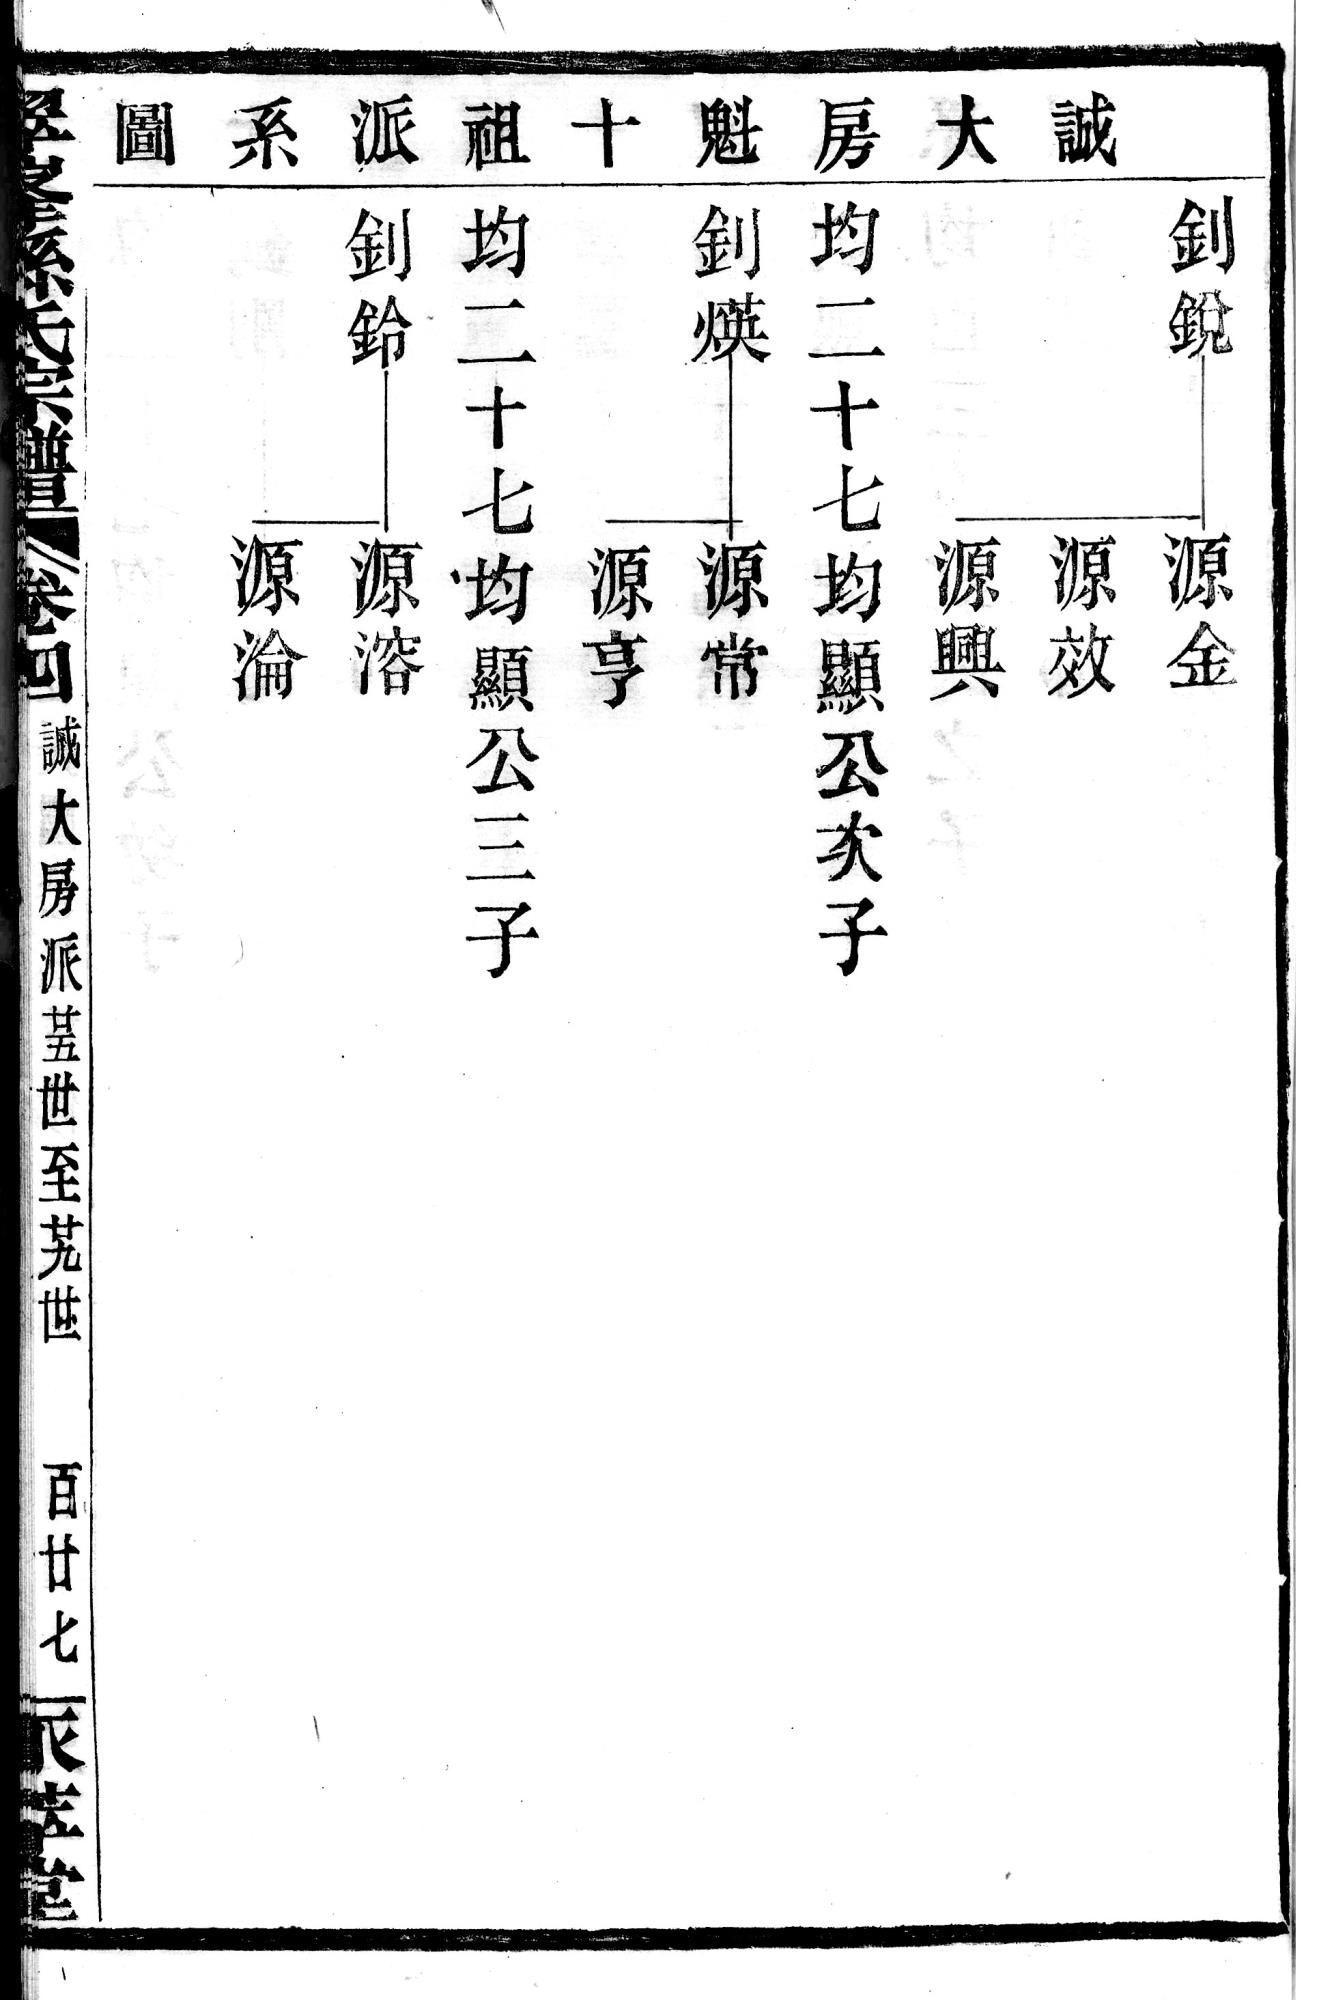 誠大房魁十祖派系圖
釗銳
源金
源效
源興
均二十七均顯公次子
釗煐
源常
源亨
均二十七均顯公三子
釗鈴
源溶
源淪
氏宗譜
卷四
誠大房派廿五世至廿九世
百廿七
堂